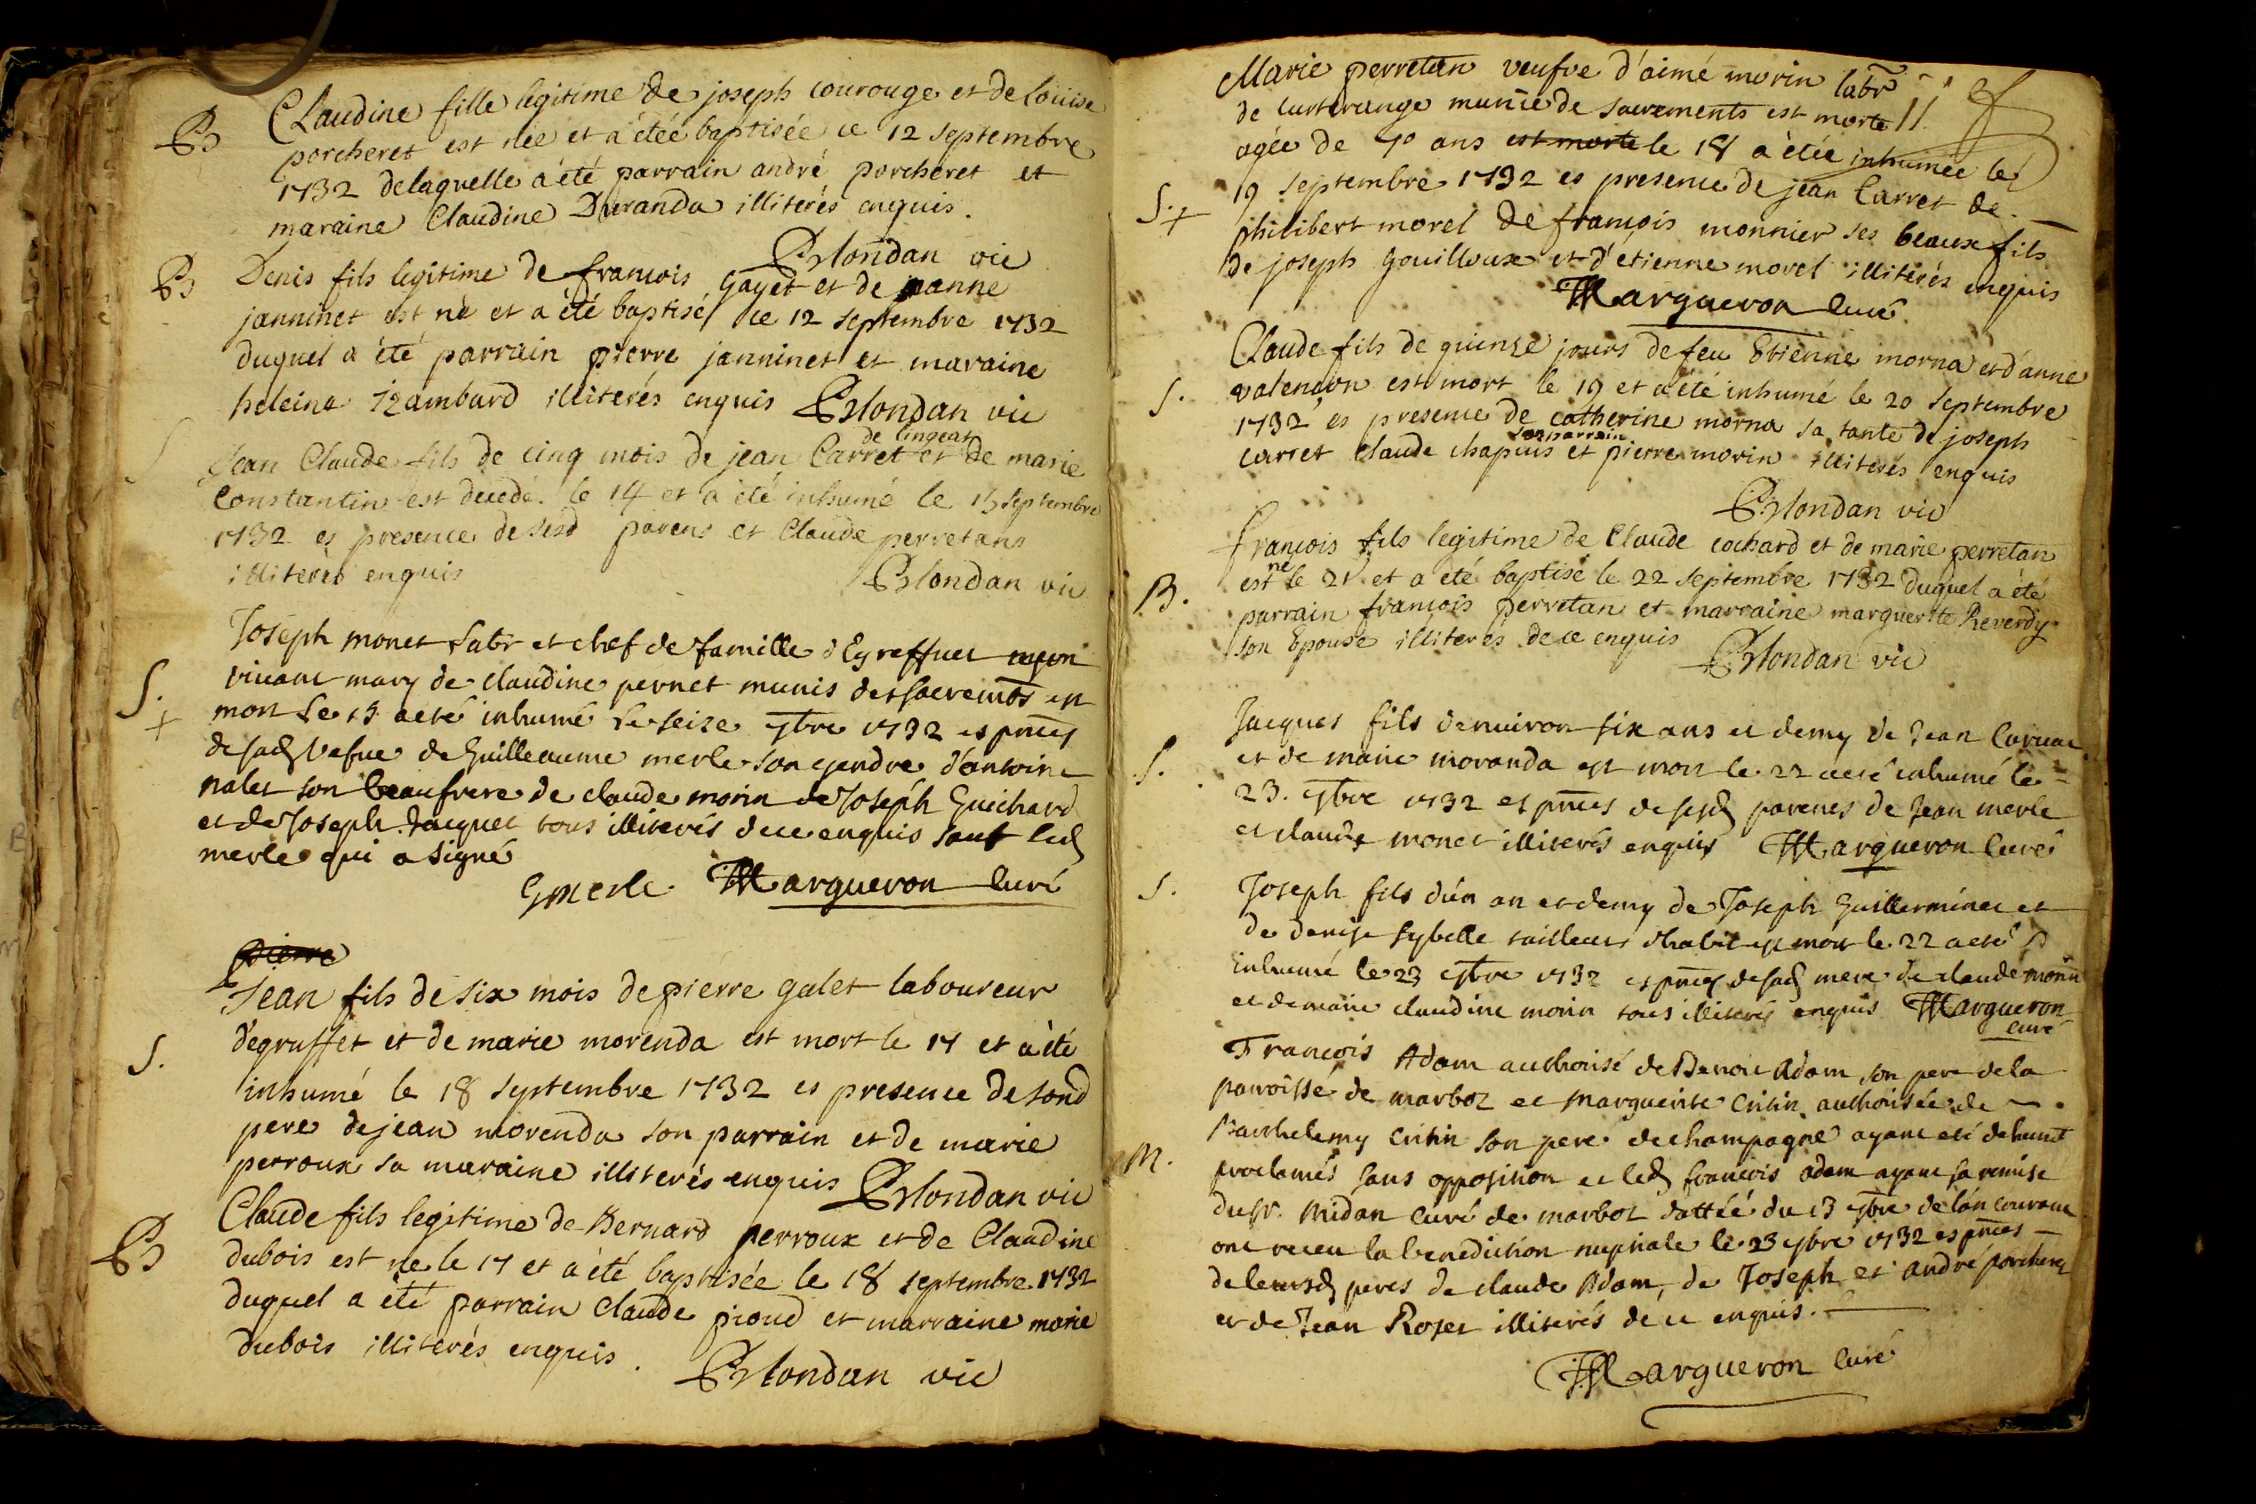 B
Claudine fille legitime de joseph courouge et de loüise
porcheret est née et a étée baptisée ce 12 septembre
1732 de laquelle a été parrain andré porcheret et
maraine Claudine Duranda illiterés enquis.
Blondan vic
B
Denis fils legitime de francois Gayet et de jeanne
janninet est né et a été baptisé ce 12 septembre 1732
duquel a été parrain pierre janninet et maraine
heleine Izambard illiterés enquis Blondan vic
S
de lingeat
Jean Claude fils de cinq mois de jean Carret et de marie
Constantin est decedé le 14 et a été inhumé le 15 septembre
1732 es presence de sesd parens et Claude perretan
illiterés enquis Blondan vic
S. +
Joseph monet labr et chef de famille d'Egreffuet
vivant mary de claudine pernet munis des sacremts est
mort le 15 a eté inhumé le seize 7bre 1732 es pnces
de sad vefue de Guilleaume merle son gendre d'antoine
nalet son beaufrere de claude morin de Joseph Guichard
et de Joseph Jacquet tous illiterés de ce enquis sauf led
merle qui a signé
Gmerle Margueron Curé
pierre
S.
Jean fils de six mois de pierre galet laboureur
degruffet et de marie morenda est mort le 17 et a été
inhumé le 18 septembre 1732 es presence de sond
pere de jean morenda son parrain et de marie
perroux sa maraine illiterés enquis Blondan vic
B
Claude fils legitime de Bernard perroux et de Claudine
dubois est né le 17 et a été baptisée le 18 septembre 1732
duquel a été parrain Claude pioud et marraine marie
dubois illiterés enquis. Blondan vic
Marie perretan veufve d'aimé morin labr
de curterange munie de sacrements est morte
agée de 70 ans est morte le 18 a étée inhumée le
S. +
19 septembre 1732 es presence de jean Carret de
philibert morel de francois monnier ses beaux fils
de joseph Gouilloux et d'étienne morel illiterés enquis
Margueron Curé
Claude fils de quinze jours de feu Etienne morna et d'anne
S.
valencon est mort le 19 et a été inhumé le 20 septembre
1732 es presence de catherine morna sa tante de joseph
son parrain
carret Claude chapuis et pierre morin illiterés enquis
Blondan vic
francois fils legitime de Claude cochard et de marie perretan
né
est le 21 et a été baptisé le 22 septembre 1732 duquel a été
B.
parrain francois perretan et marraine marguerite Reverdy
son Epouse illiterés de ce enquis Blondan vic
Jacques fils d'enuiron six ans et demy de Jean
S.
et de marie moranda est mort le 22 a eté inhumé le
23. 7bre 1732 es pnces de sesd parents de Jean merle
et claude monet illiterés enquis Margueron Curé
S.
Joseph fils d'un an et demy de Joseph Guillerminet et
de denise sybelle tailleurs d'habit est mort le 22 a eté
inhumé le 23 7bre 1732 es pnces de sad mere de claude morin
et de marie claudine morin tous illiterés enquis Margueron
curé
Francois Adam authorisé de Benoit Adam son pere de la
parroisse de marboz et Marguerite Critin authorisée de
Barthelemy Critin son pere de champagne ayant eté dehument
M.
proclamés sans opposition et led francois adam ayant sa remise
du sr. Midan curé de marboz dattéé du 13 7bre de l'an courant
ont receu la benediction nuptiale le 23 7bre 1732 es pnces
de leursd peres de claude Adam, de Joseph et andré porcheret
et de Jean Roset illiterés de ce enquis.
Margueron Curé